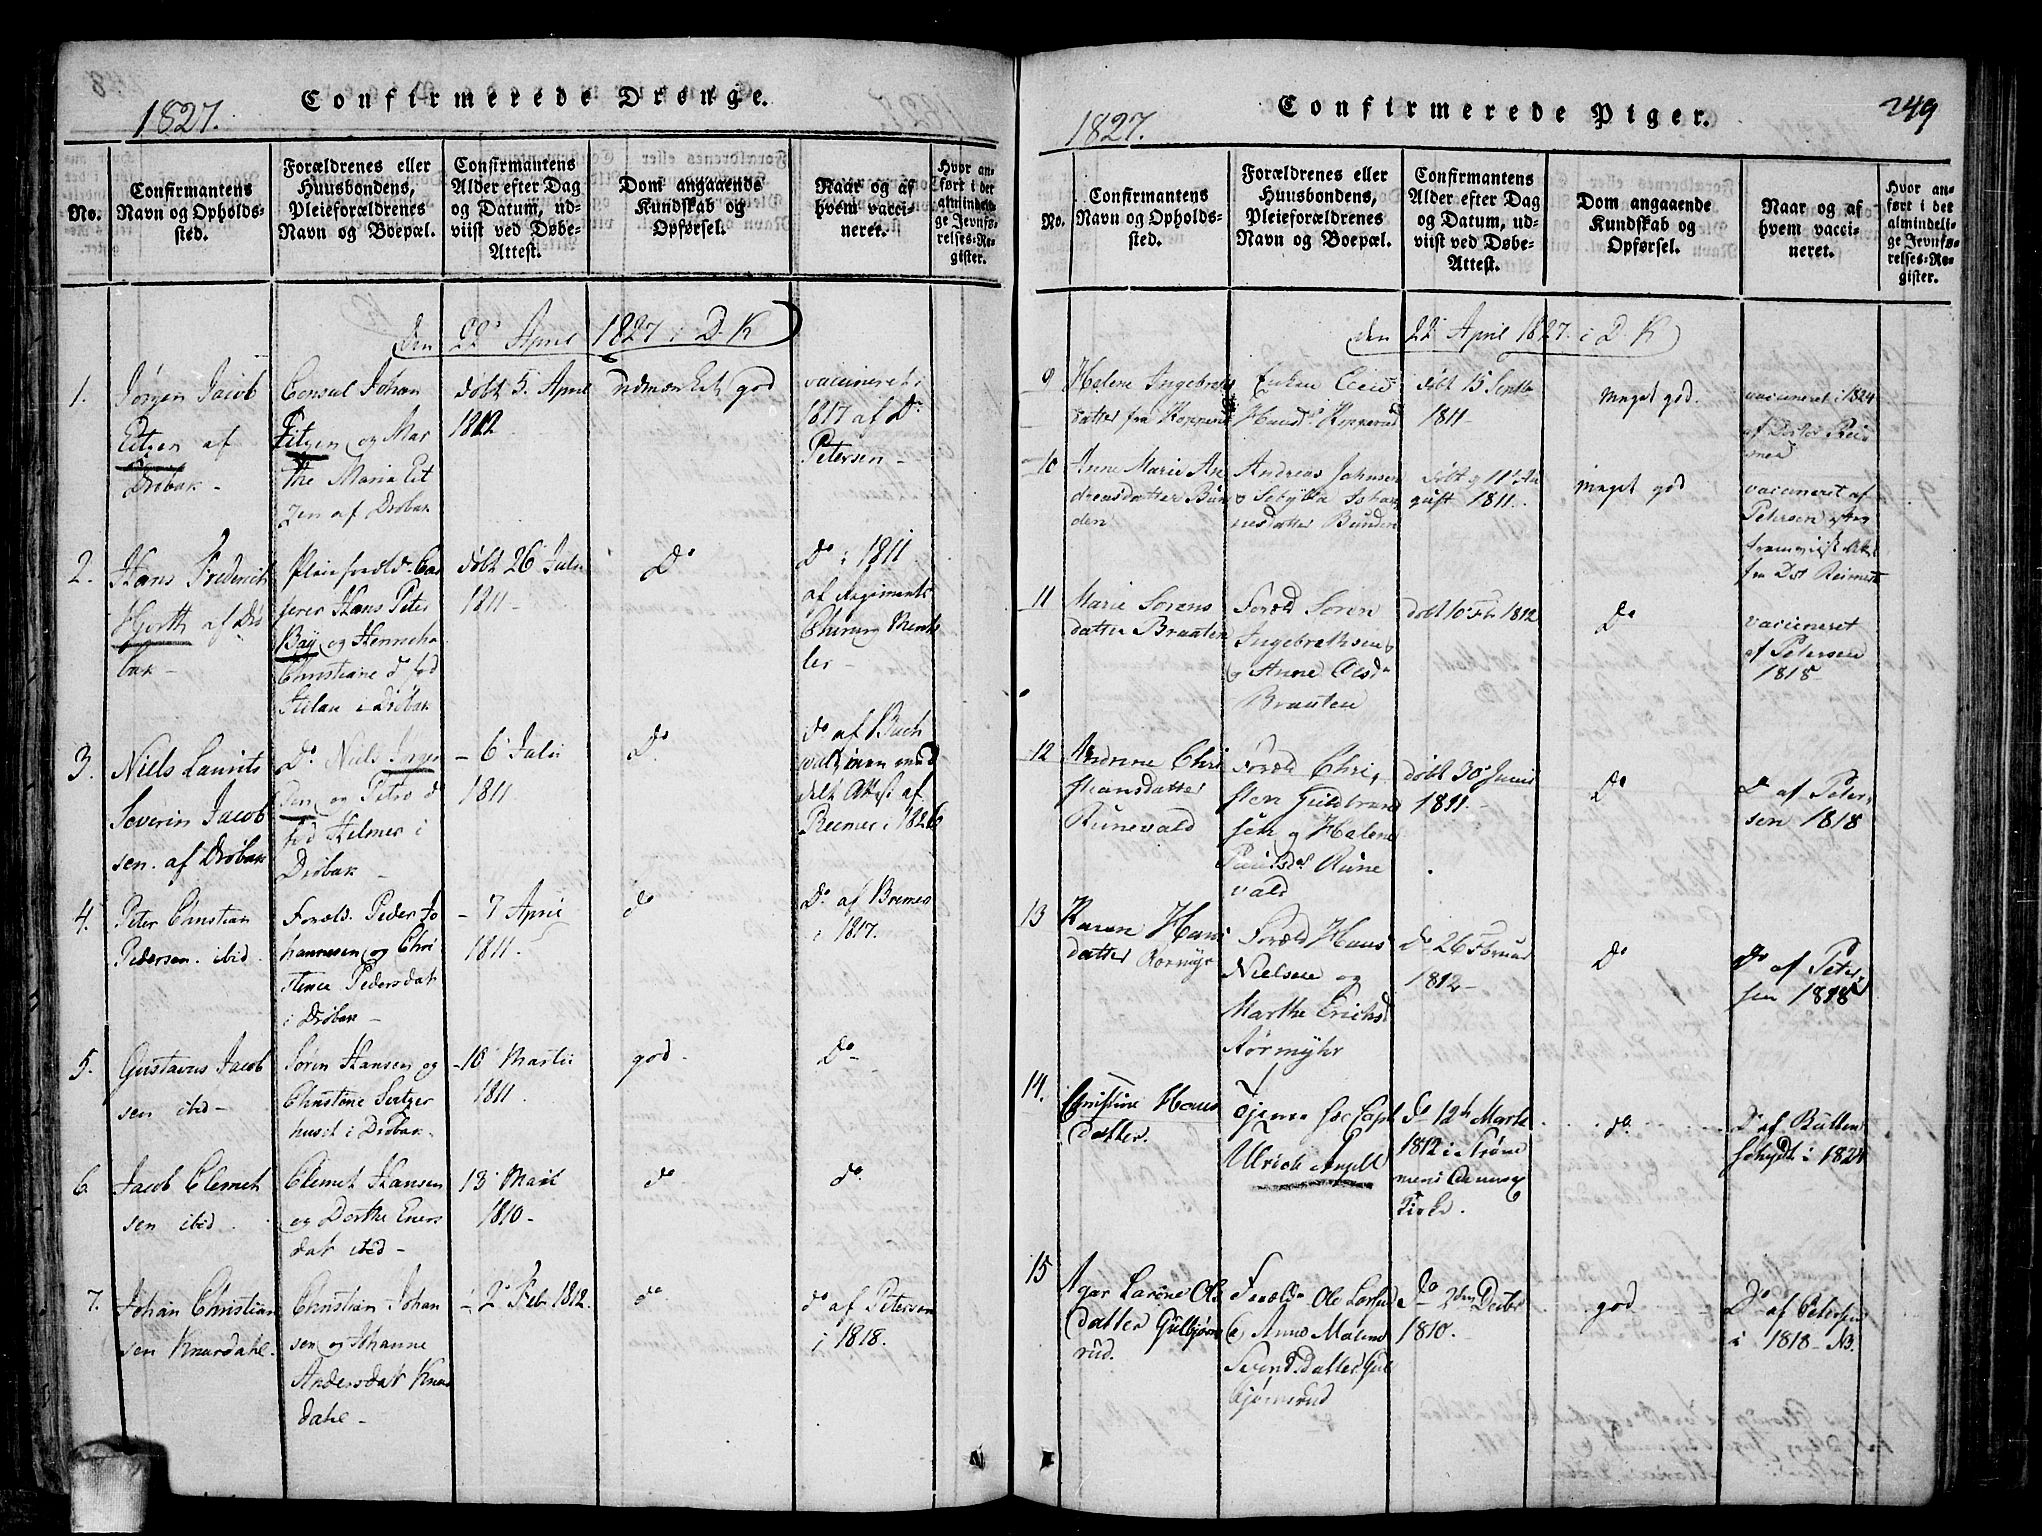 Confirmerede Drenge.
1827.
No.
Confirmantens
Navn og Opholds-
sted.
Forældrenes eller
Huusbondens,
Pleieforældrenes
Navn og Boepæl.
Confirmantens
Alder efter Dag
og Datum, ud-
viist ved Døbe-
Attest.
Dom angaaende
Kundskab og
Opførsel.
Naar og af
hvem vacci-
neret.
Hvor an-
ført i det
almindeli-
ge Jevnfø-
relses-Re-
gister.
den 22de April 1827 i D. K
1.
Jørgen Jacob
Eitzen af
Drøbak -
Consul Johan
Eitzen og Mar
the Maria Eit
zen af Drøbak
døbt 5. April
1812
udmærket god
vaccineret i
1817 af Dr.
Petersen -
2.
Hans Frederich
Hjorth af Drø
bak -
Pleieforæld.
Hans Peter
Bay og
Christiane
i Drøbak
døbt 26 Julii
1811 -
do
do i 1811
af Regiments
Chirurg
3.
Niels Laurits
Severin Jacob
sen. af Drøbak
Do Niels
og
Helmer i
Drøbak -
- 6 Julii
1811
do
do af Buch
Attest af
Reemer i 1826
4.
Peter Christian
Pedersen. ibid.
Foræld. Peder Jo
hannesen og Chri
stence Pedersdat
i Drøbak
- 7 April
1811. -
do
do. af
i 1817.
5.
Gustavus Jacob
sen ibid -
Søren Hansen og
Christene
huset i Drøbak -
- 18 Martii
1811.
god -
do -
6.
Jacob Clemet
sen ibid.
Clemet Hansen
og Dorthe Eners
dat ibid -
13
1810 -
do
do
7.
Johan Christian
sen Knardahl.
Christian Johan
sen og Johanne
Andersdat Knar
dahl -
- 2 Feb. 1812.
do
do af Petersen
i 1818.
Confirmerede Piger.
1827.
249
No.
Confirmantens
Navn og Opholds-
sted.
Forældrenes eller
Huusbondens,
Pleieforældrenes
Navn og Boepæl.
Confirmantens
Alder efter Dag
og Datum, ud-
viist ved Døbe-
Attest.
Dom angaaende
Kundskab og
Opførsel.
Naar og af
hvem vacci-
neret.
Hvor an-
ført i det
almindeli-
ge Jevnfø-
relses-Re-
gister.
den 22de April 1827 i D. K
9
Helene Ingebrets
datter fra Kopperud
Enken
Hansd. Kopperud
døbt 15 Septbr
1811 -
Meget god.
vaccineret i 1824
af Doctor
10
Anne Marie An
dreasdatter Bun
den
Andreas Johnsen
og Sebylla Johan
nesdatter Bunden
døbt 11te Au
gust 1811.
Meget god
vaccineret af
Petersen efter
11
Marie Sørens
datter Braaten
Foræld Søren
Ingebrethsen
og Anne Olesd
Braaten
døbt 10 Feb 1812
Do
vaccineret
af Petersen
1818
12
Andrine Chri
stiansdatter
Runevald
Foræld Chri-
sten Guldbrand
sen og Helene
Paulsd. Rune
vald
døbt 30 Junii
1811. -
Do
D af Peter
sen 1818
13
Karen Hans
datter Rørmyr
Foræld Hans
Nielsen og
Marthe Erichsd
Rørmyhr
do 26 Februar
1812 -
Do
do af Peter
sen 1818
14.
Christine Hans
datter.
Tjener hos Capt
Ullrich Angell
do 12te Marts
1812 i
do.
Do af Bütten
schydt i 1824
15
Agar Larine Ols
datter Gulbjørn
rud.
Foræld.
og Anne Malene
Svendsdatter Gul
bjørnsrud
do 2den Decbr
1810.
god
Do
af Petersen
i 1818 -